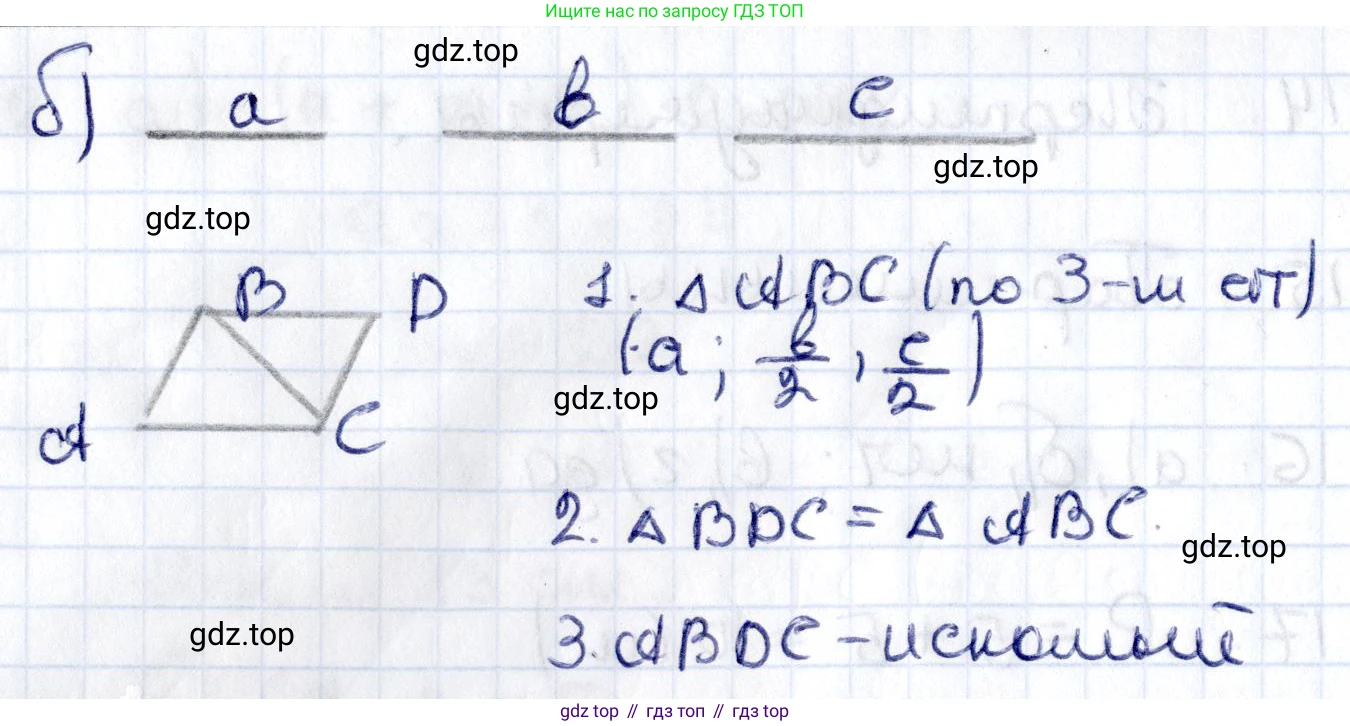 Ищите нас по запросу ГДЗ ТОП
gdz.top
б) a b c
gdz.top
gdz.top
B D
1. Δ ABC (по 3-м ст)
(a; b/2, c/2)
gdz.top
A C
2. Δ BDC = Δ ABC.
gdz.top
gdz.top
3. ABDC - искомый
gdz top // гдз топ // гдз top